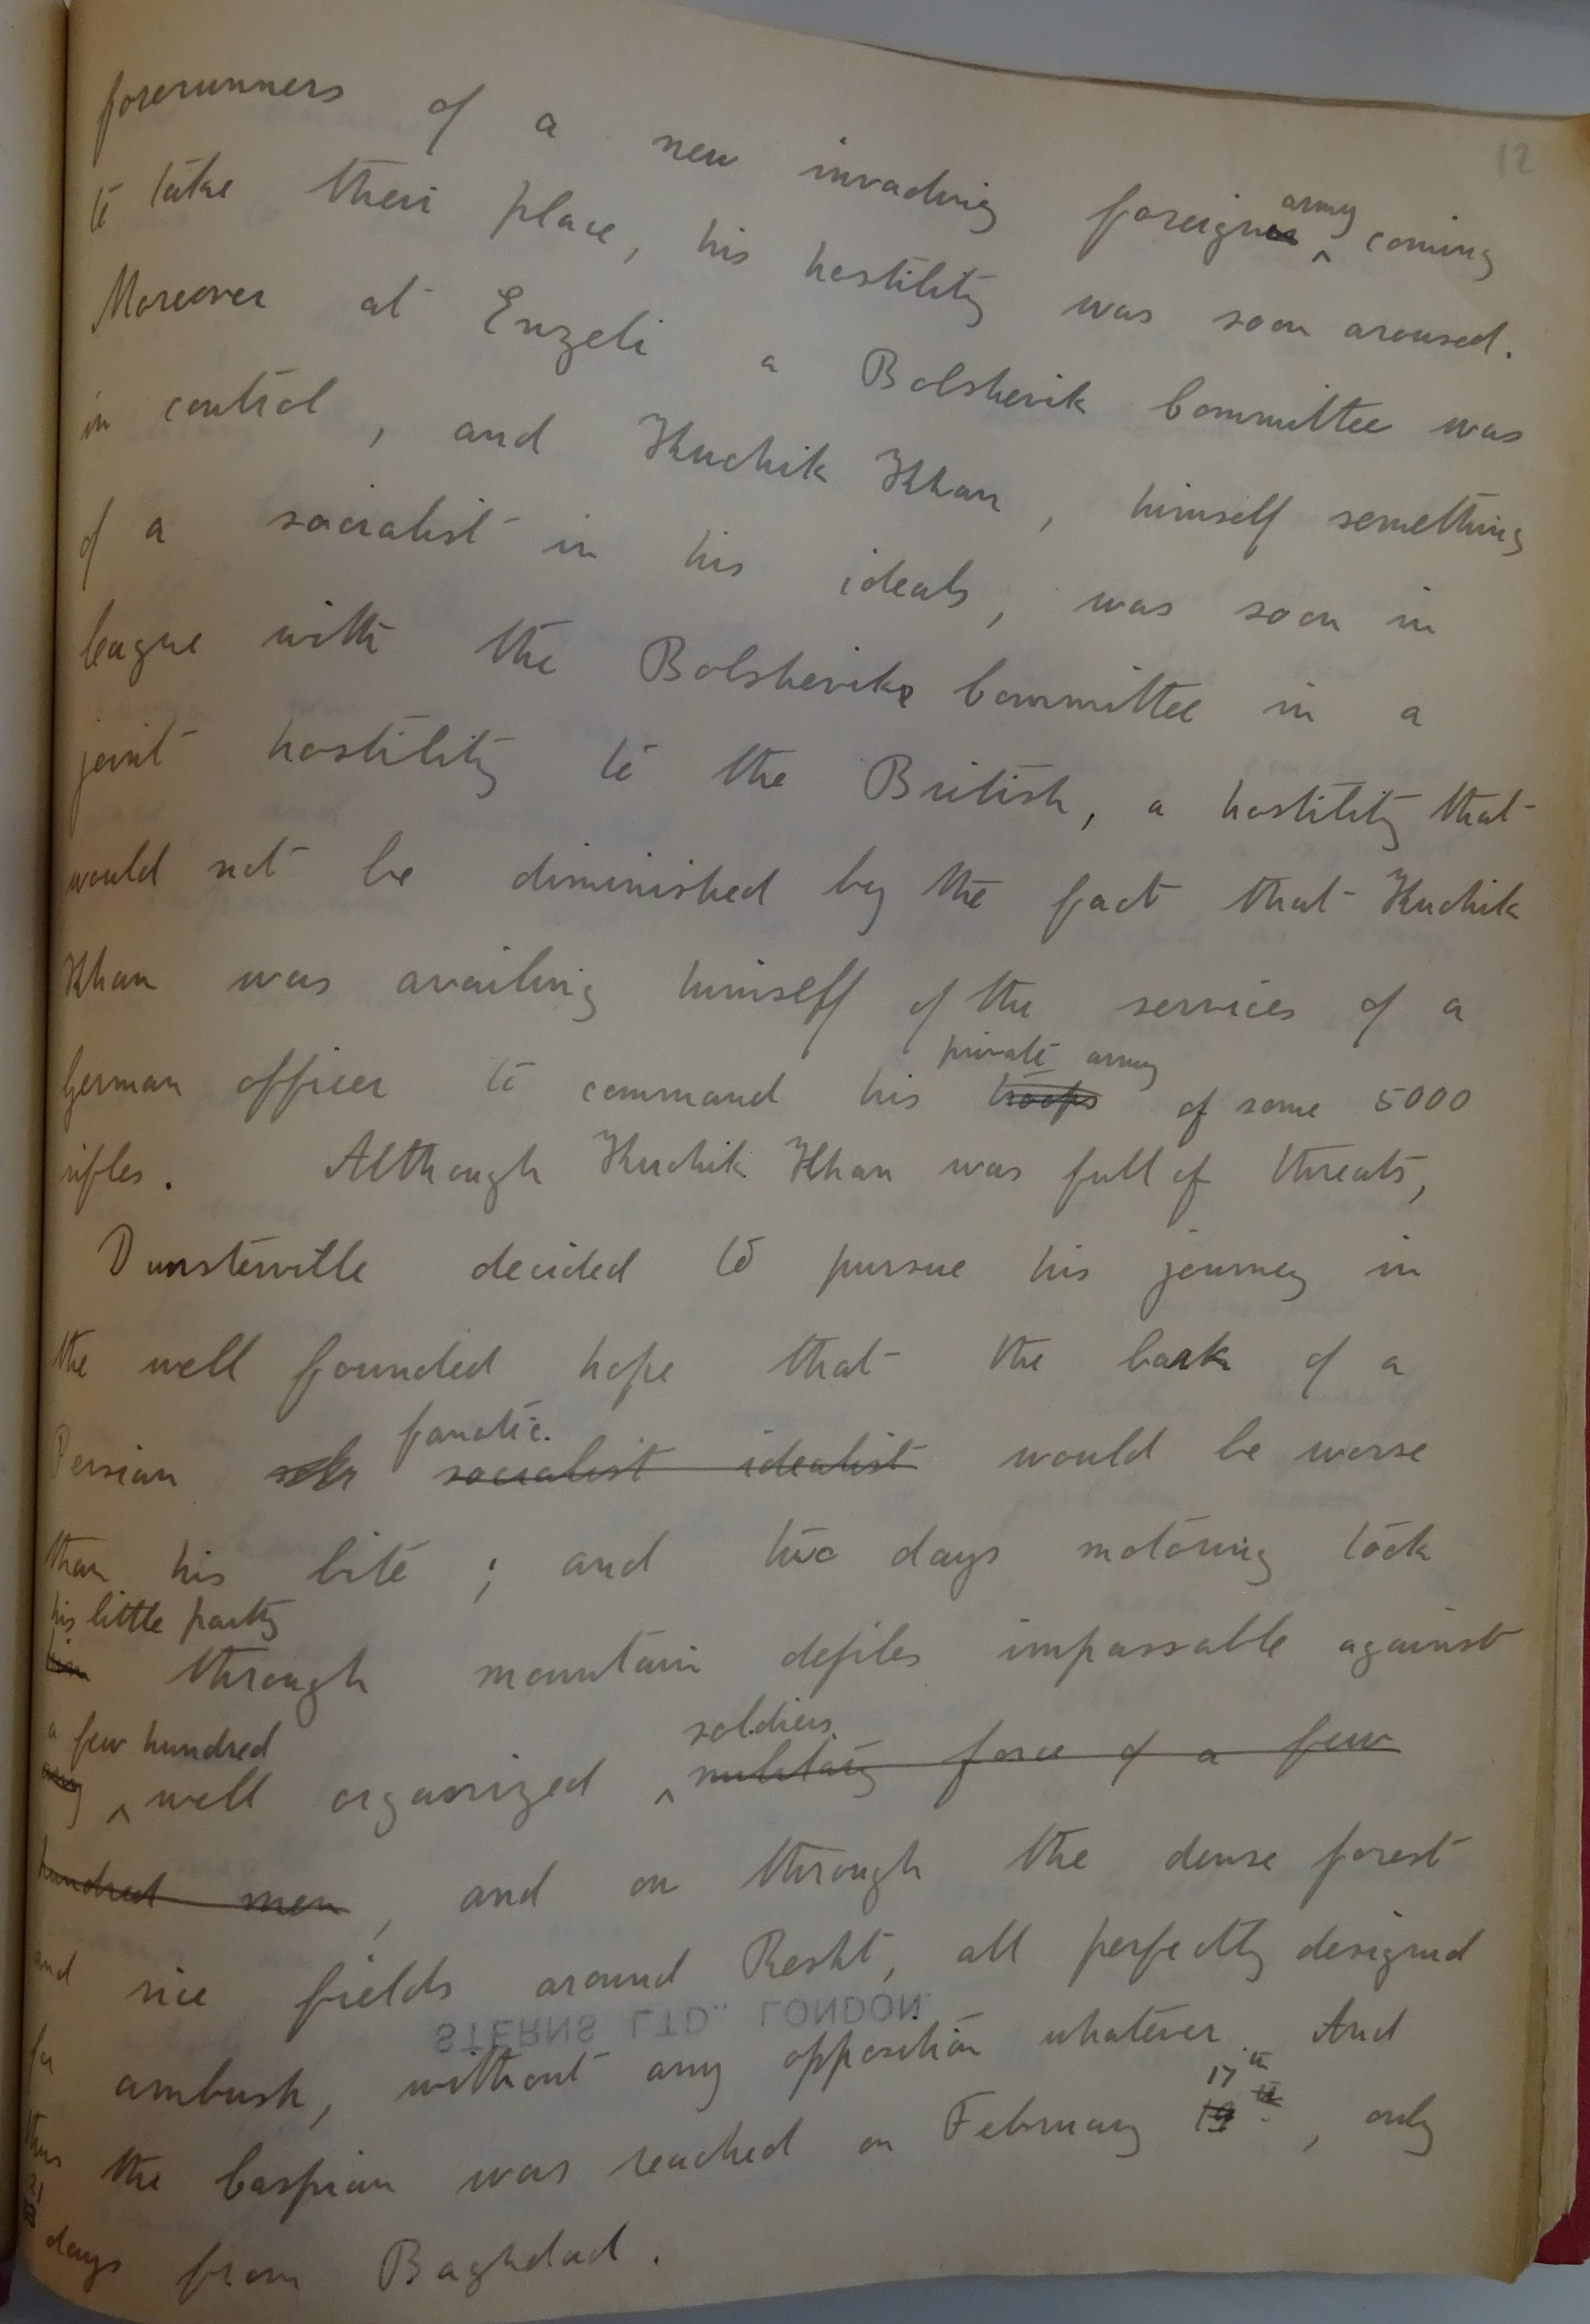 12
forerunners of a new invading foreign army coming
to take their place, his hostility was soon aroused.
Moreover at Enzeli a Bolshevik Committee was
in control, and Kuchik Khan, himself something
of a socialist in his ideals, was soon in
league with the Bolshevik Committee in a
joint hostility to the British, a hostility that
would not be diminished by the fact that Kuchik
Khan was availing himself of the services of a
private army
German officer to command his troops of some 5000
rifles. Although Kuchik Khan was full of threats,
Dunsterville decided to pursue his journey in
the well founded hope that the bark of a
fanatic.
Persian socialist idealist would be worse
than his bite; and two days motoring took
his little party
him through mountain defiles impassable against
a few hundred soldiers
any well organized military force of a few
hundred men, and on through the dense forest
and rice fields around Resht, all perfectly designed
STERNS LTD., LONDON.
for ambush, without any opposition whatever. And
17th
thus the Caspian was reached on February 19th, only
21
days from Baghdad.